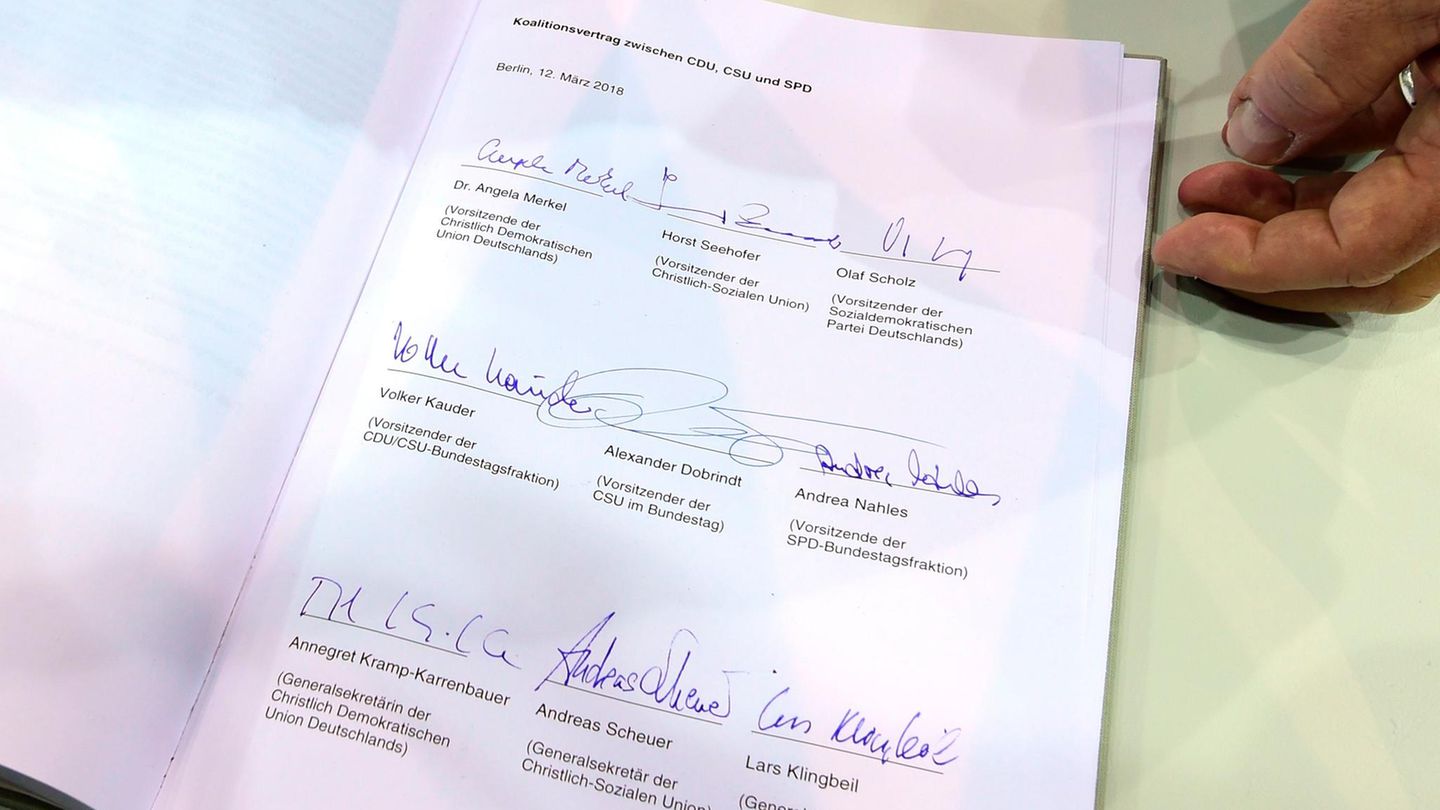 Koalitionsvertrag zwischen CDU, CSU und SPD
Berlin, 12. März 2018
Angela Merkel
Dr. Angela Merkel
(Vorsitzende der
Christlich Demokratischen
Union Deutschlands)
Horst Seehofer
(Vorsitzender der
Christlich-Sozialen Union)
Olaf Scholz
(Vorsitzender der
Sozialdemokratischen
Partei Deutschlands)
Volker Kauder
Volker Kauder
(Vorsitzender der
CDU/CSU-Bundestagsfraktion)
Alexander Dobrindt
(Vorsitzender der
CSU im Bundestag)
Andrea Nahles
Andrea Nahles
(Vorsitzende der
SPD-Bundestagsfraktion)
Annegret Kramp-Karrenbauer
(Generalsekretärin der
Christlich Demokratischen
Union Deutschlands)
Andreas Scheuer
Andreas Scheuer
(Generalsekretär der
Christlich-Sozialen Union)
Lars Klingbeil
Lars Klingbeil